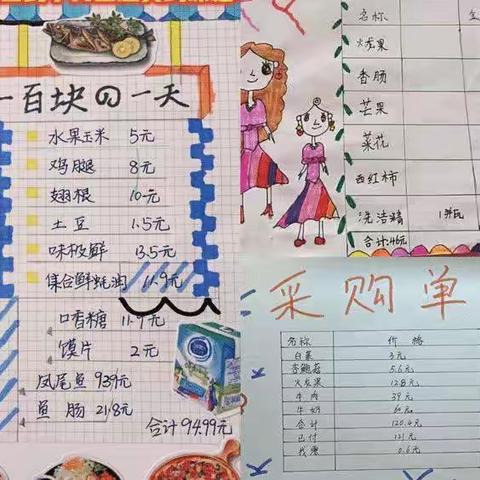 一百块の一天
水果玉米 5元
鸡腿 8元
翅根 10元
土豆 1.5元
味极鲜 13.5元
集合鲜蚝油 11.9元
口香糖 11.9元
馍片 2元
凤尾鱼 9.39元
鱼肠 21.8元
合计 94.99元
名称
火龙果
香肠
芒果
菜花
西红柿
洗洁精
合计:46元
采购单
名称 价格
白菜 3元
5.6元
火龙果 12.8元
牛肉 39元
牛奶 60元
合计 120.4元
已付 121元
找零 0.6元